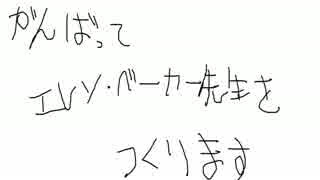 がんばって
エレン・ベーカー先生を
つくります